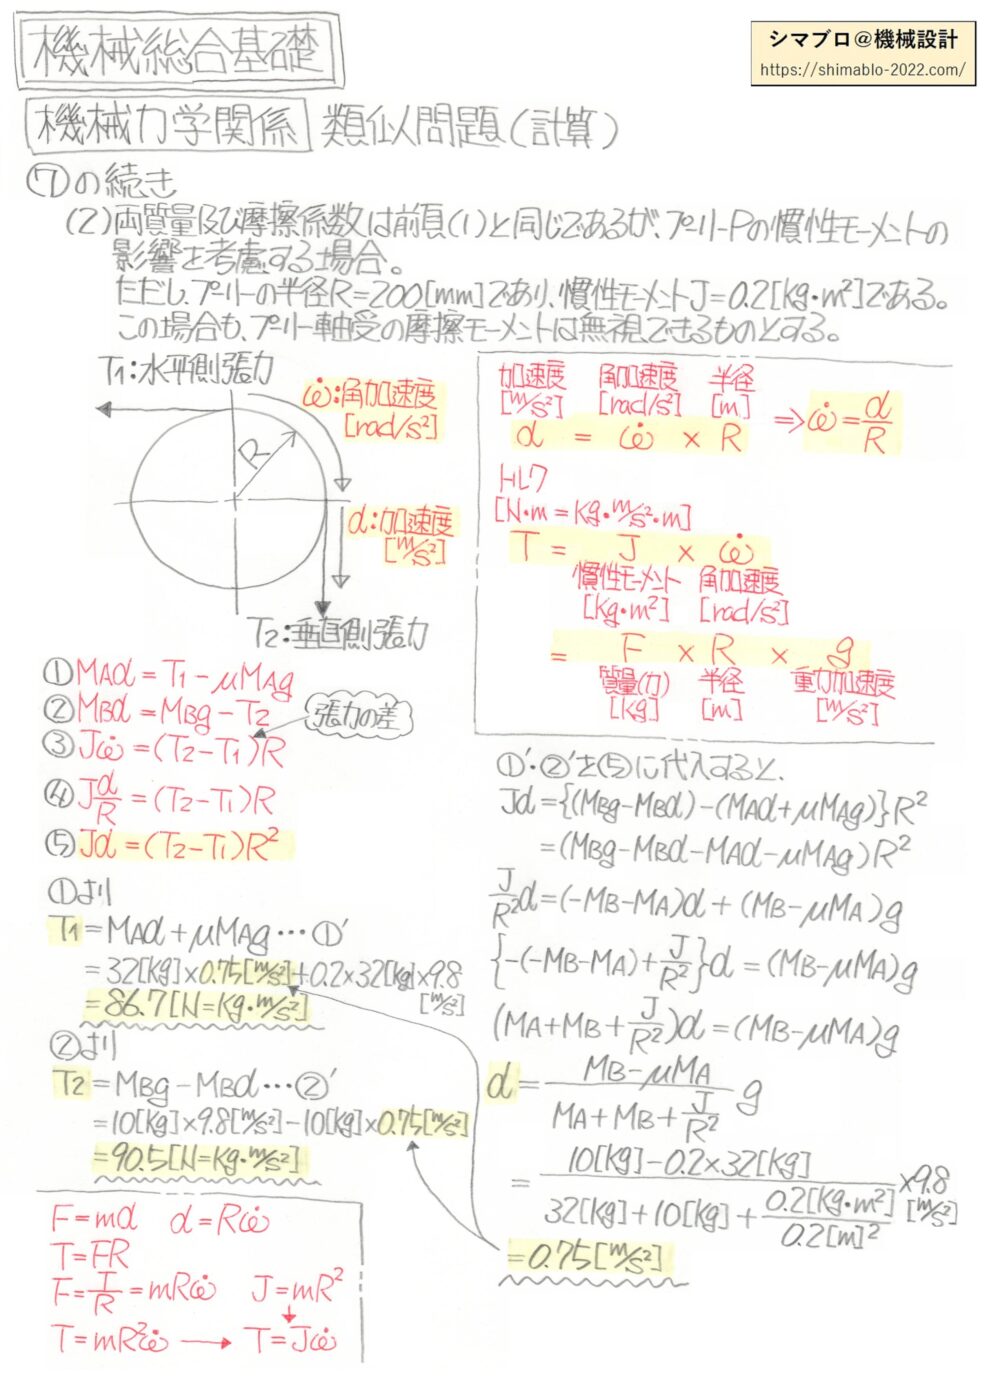 機械総合基礎
シマブロ@機械設計
https://shimablo-2022.com/
機械力学関係 類似問題(計算)
⑦の続き
(2)両質量及び摩擦係数は前頁(1)と同じであるが、プーリーPの慣性モーメントの
影響を考慮する場合。
ただし、プーリーの半径R=200[mm]であり、慣性モーメントJ=0.2[kg・m²]である。
この場合も、プーリー軸受の摩擦モーメントは無視できるものとする。
T₁:水平側張力
ω̇:角加速度
[rad/s²]
R
α:加速度
[m/s²]
T₂:垂直側張力
加速度 角加速度 半径
[m/s²] [rad/s²] [m]
α = ω̇ × R ⇒ ω̇=α/R
トルク
[N・m=kg・m/s²・m]
T = J × ω̇
慣性モーメント 角加速度
[kg・m²] [rad/s²]
= F × R × g
質量(力) 半径 重力加速度
[kg] [m] [m/s²]
①MAα=T₁-μMAg
②MBα=MBg-T₂
張力の差
③Jω̇=(T₂-T₁)R
④Jα/R=(T₂-T₁)R
⑤Jα=(T₂-T₁)R²
①より
T₁=MAα+μMAg…①'
=32[kg]×0.75[m/s²]+0.2×32[kg]×9.8
[m/s²]
=86.7[N=kg・m/s²]
②より
T₂=MBg-MBα…②'
=10[kg]×9.8[m/s²]-10[kg]×0.75[m/s²]
=90.5[N=kg・m/s²]
F=mα α=Rω̇
T=FR
F=T/R=mRω̇ J=mR²
T=mR²ω̇ → T=Jω̇
①'・②'を⑤に代入すると、
Jα={(MBg-MBα)-(MAα+μMAg)}R²
=(MBg-MBα-MAα-μMAg)R²
J/R²α=(-MB-MA)α+(MB-μMA)g
{-(-MB-MA)+J/R²}α=(MB-μMA)g
(MA+MB+J/R²)α=(MB-μMA)g
α=MB-μMA/MA+MB+J/R² g
=10[kg]-0.2×32[kg]/32[kg]+10[kg]+0.2[kg・m²]/0.2[m]² ×9.8
[m/s²]
=0.75[m/s²]